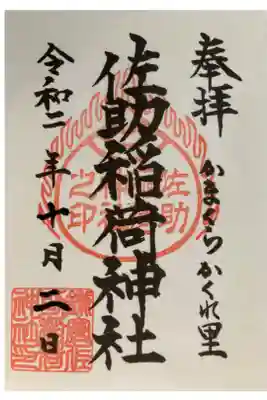 奉拝
かまくらかくれ里
佐助稲荷神社
令和二年十月二日
佐助
之印